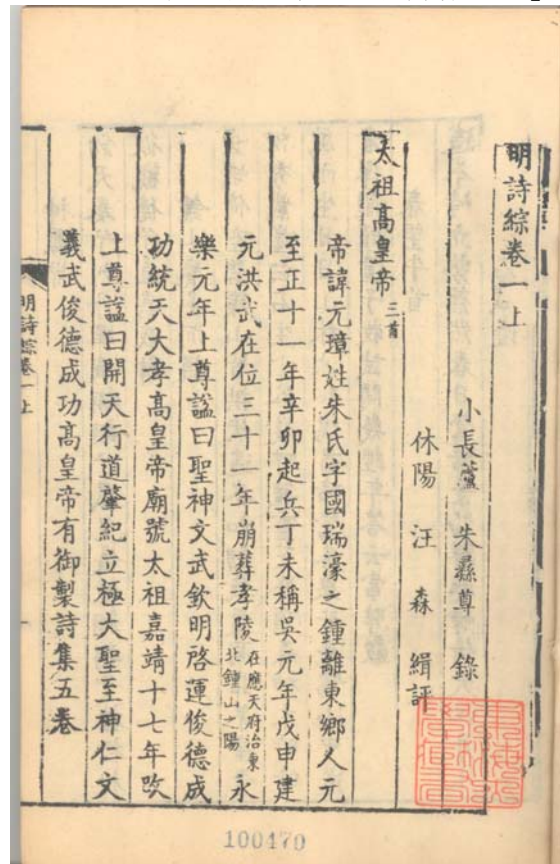 明詩綜卷一上
小長蘆 朱彞尊 錄
休陽 汪 森 緝評
太祖高皇帝 三首
帝諱元璋姓朱氏字國瑞濠之鍾離東鄉人元
至正十一年辛卯起兵丁未稱吳元年戊申建
元洪武在位三十一年崩葬孝陵 在應天府治東北鐘山之陽 永
樂元年上尊謚曰聖神文武欽明啓運俊德成
功統天大孝高皇帝廟號太祖嘉靖十七年改
上尊謚曰開天行道肇紀立極大聖至神仁文
義武俊德成功高皇帝有御製詩集五卷
明詩綜卷一上
一
100470